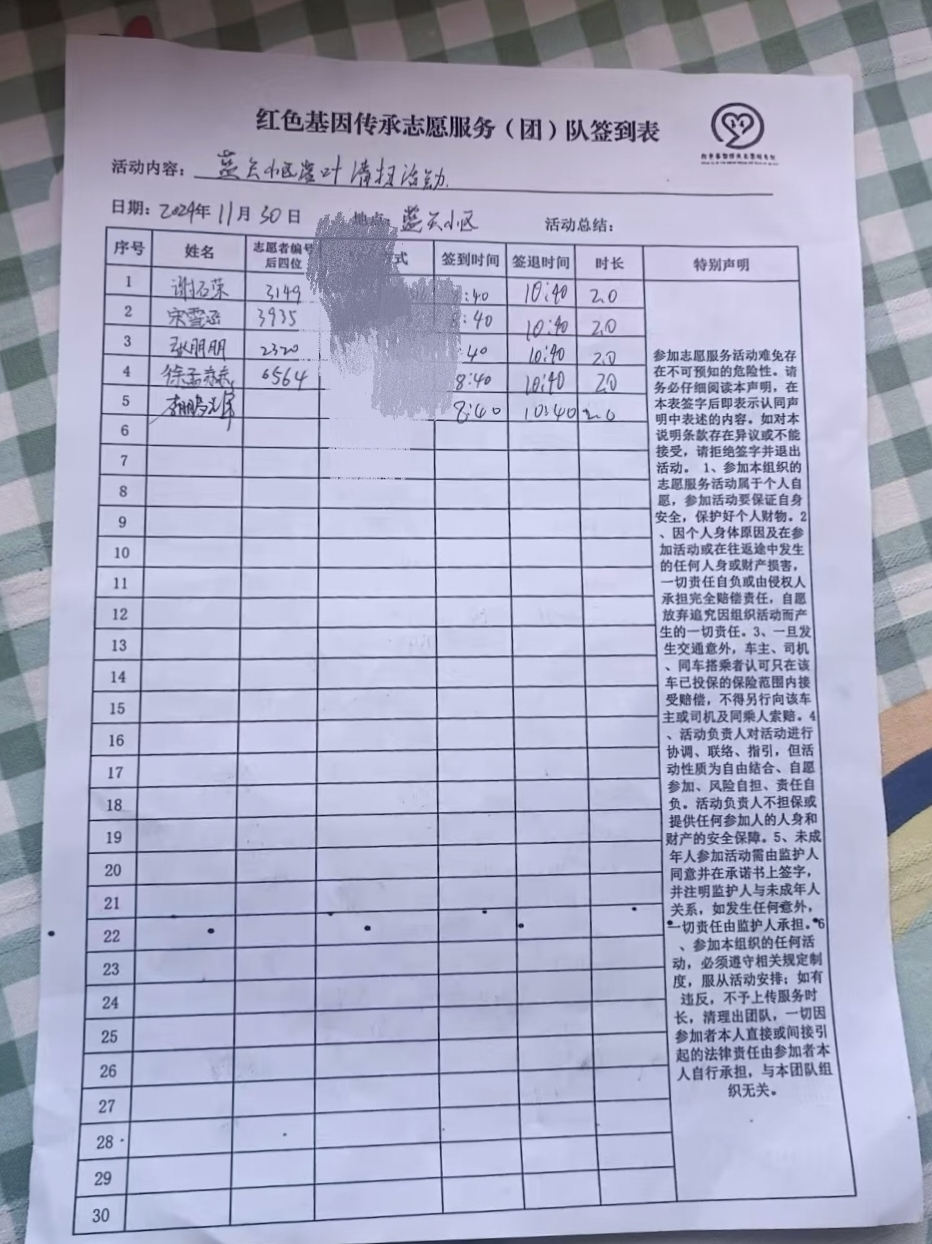 红色基因传承志愿服务（团）队签到表
活动内容： 蓝天小区落叶清扫活动
日期：2024年11月30日 地点： 蓝天小区 活动总结：
序号 姓名 志愿者编号后四位 方式 签到时间 签退时间 时长 特别声明
1 谢石荣 3149 :40 10:40 2.0
2 宋雪涵 3935 :40 10:40 2.0
3 朋朋 2320 :40 10:40 2.0
4 徐孟 6564 8:40 10:40 2.0
5 8:40 10:40 2.0
6
7
8
9
10
11
12
13
14
15
16
17
18
19
20
21
22
23
24
25
26
27
28
29
30
参加志愿服务活动难免存
在不可预知的危险性。请
务必仔细阅读本声明，在
本表签字后即表示认同声
明中表述的内容。如对本
说明条款存在异议或不能
接受，请拒绝签字并退出
活动。 1、参加本组织的
志愿服务活动属于个人自
愿，参加活动要保证自身
安全，保护好个人财物。2
、因个人身体原因及在参
加活动或在往返途中发生
的任何人身或财产损害，
一切责任自负或由侵权人
承担完全赔偿责任，自愿
放弃追究因组织活动而产
生的一切责任。3、一旦发
生交通意外，车主、司机
、同车搭乘者认可只在该
车已投保的保险范围内接
受赔偿，不得另行向该车
主或司机及同乘人索赔。4
、活动负责人对活动进行
协调、联络、指引，但活
动性质为自由结合、自愿
参加、风险自担、责任自
负。活动负责人不担保或
提供任何参加人的人身和
财产的安全保障。5、未成
年人参加活动需由监护人
同意并在承诺书上签字，
并注明监护人与未成年人
关系，如发生任何意外，
一切责任由监护人承担。6
、参加本组织的任何活
动，必须遵守相关规定制
度，服从活动安排；如有
违反，不予上传服务时
长，清理出团队，一切因
参加者本人直接或间接引
起的法律责任由参加者本
人自行承担，与本团队组
织无关。